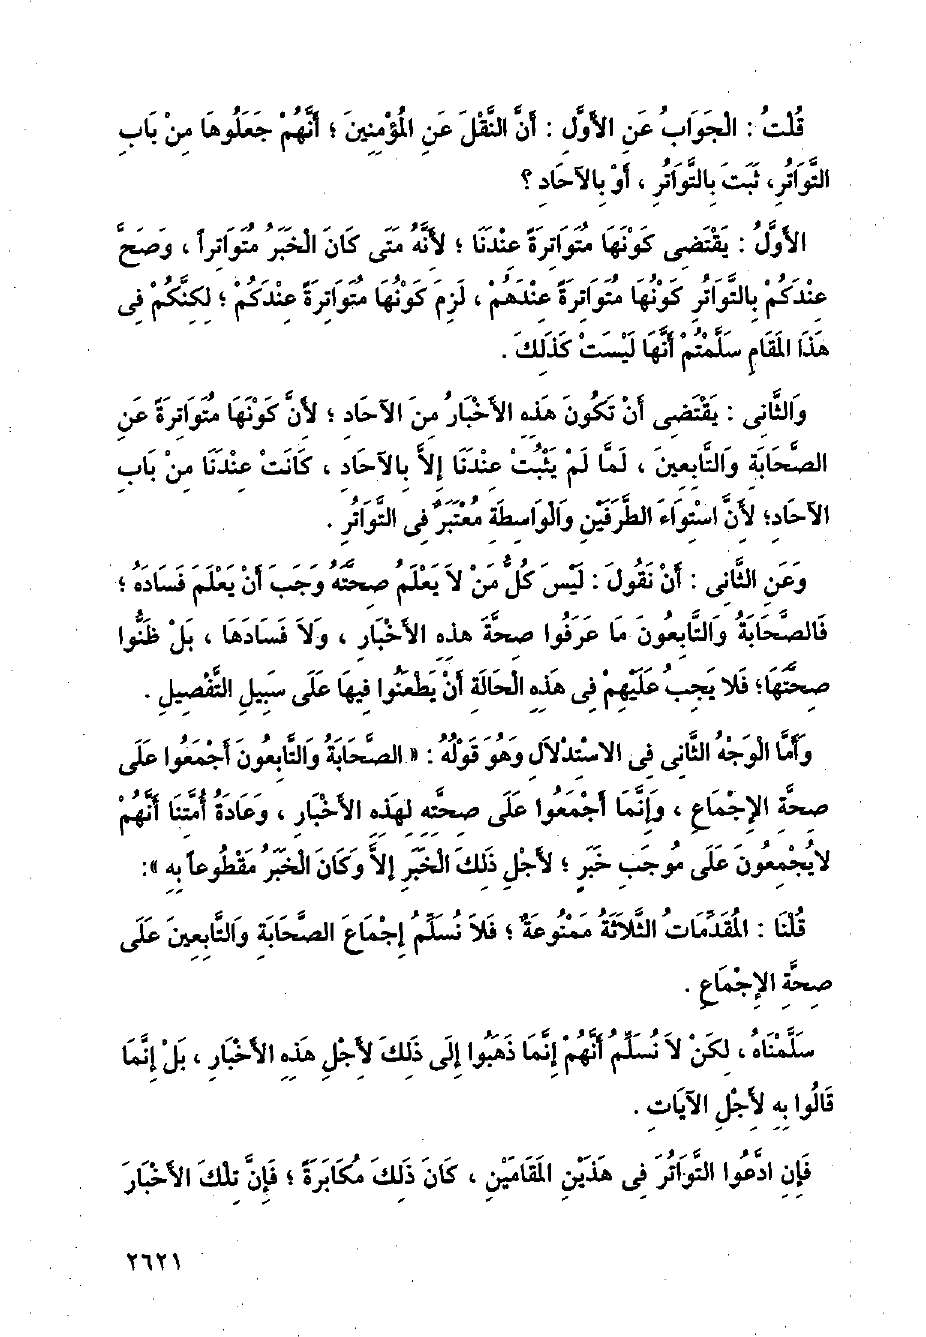 قُلْتُ : الْجَوَابُ عَنِ الأَوَّلِ : أَنَّ النَّقْلَ عَنِ المُؤْمِنِينَ ؛ أَنَّهُمْ جَعَلُوهَا مِنْ بَابِ
التَّوَاتُرِ، ثَبَتَ بِالتَّوَاتُرِ ، أَوْ بِالآحَادِ ؟
الأَوَّلُ : يَقْتَضِى كَوْنَهَا مُتَوَاتِرَةً عِنْدَنَا ؛ لأَنَّهُ مَتَى كَانَ الْخَبَرُ مُتَوَاتِراً ، وَصَحَّ
عِنْدَكُمْ بِالتَّوَاتُرِ كَوْنُهَا مُتَوَاتِرَةً عِنْدَهُمْ ، لَزِمَ كَوْنُهَا مُتَوَاتِرَةً عِنْدَكُمْ ؛ لَكِنَّكُمْ فِى
هَذَا المَقَامِ سَلَّمْتُمْ أَنَّهَا لَيْسَتْ كَذَلِكَ .
وَالثَّانِى : يَقْتَضِى أَنْ تَكُونَ هَذِهِ الأَخْبَارُ مِنَ الآحَادِ ؛ لأَنَّ كَوْنَهَا مُتَوَاتِرَةً عَنِ
الصَّحَابَةِ وَالتَّابِعِينَ ، لَمَّا لَمْ يَثْبُتْ عِنْدَنَا إِلاَّ بِالآحَادِ ، كَانَتْ عِنْدَنَا مِنْ بَابِ
الآحَادِ؛ لأَنَّ اسْتِوَاءَ الطَّرَفَيْنِ وَالْوَاسِطَةِ مُعْتَبَرٌ فِى التَّوَاتُرِ .
وَعَنِ الثَّانِى : أَنْ نَقُولَ : لَيْسَ كُلُّ مَنْ لاَ يَعْلَمُ صِحَّتَهُ وَجَبَ أَنْ يَعْلَمَ فَسَادَهُ ؛
فَالصَّحَابَةُ وَالتَّابِعُونَ مَا عَرَفُوا صِحَّةَ هَذِهِ الأَخْبَارِ ، وَلاَ فَسَادَهَا ، بَلْ ظَنُّوا
صِحَّتَهَا؛ فَلاَ يَجِبُ عَلَيْهِمْ فِى هَذِهِ الْحَالَةِ أَنْ يَطْعَنُوا فِيهَا عَلَى سَبِيلِ التَّفْصِيلِ .
وَأَمَّا الْوَجْهُ الثَّانِى فِى الاسْتِدْلاَلِ وَهُوَ قَوْلُهُ : « الصَّحَابَةُ وَالتَّابِعُونَ أَجْمَعُوا عَلَى
صِحَّةِ الإِجْمَاعِ ، وَإِنَّمَا أَجْمَعُوا عَلَى صِحَّتِهِ لِهَذِهِ الأَخْبَارِ ، وَعَادَةُ أُمَّتِنَا أَنَّهُمْ
لاَيُجْمِعُونَ عَلَى مُوجَبِ خَبَرٍ ؛ لأَجْلِ ذَلِكَ الْخَبَرِ إِلاَّ وَكَانَ الْخَبَرُ مَقْطُوعاً بِهِ »:
قُلْنَا : المُقَدِّمَاتُ الثَّلاَثَةُ مَمْنُوعَةٌ ؛ فَلاَ نُسَلِّمُ إِجْمَاعَ الصَّحَابَةِ وَالتَّابِعِينَ عَلَى
صِحَّةِ الإِجْمَاعِ .
سَلَّمْنَاهُ ، لَكِنْ لاَ نُسَلِّمُ أَنَّهُمْ إِنَّمَا ذَهَبُوا إِلَى ذَلِكَ لأَجْلِ هَذِهِ الأَخْبَارِ ، بَلْ إِنَّمَا
قَالُوا بِهِ لأَجْلِ الآيَاتِ .
فَإِنِ ادَّعُوا التَّوَاتُرَ فِى هَذَيْنِ المَقَامَيْنِ ، كَانَ ذَلِكَ مُكَابَرَةً ؛ فَإِنَّ تِلْكَ الأَخْبَارَ
٢٦٢١